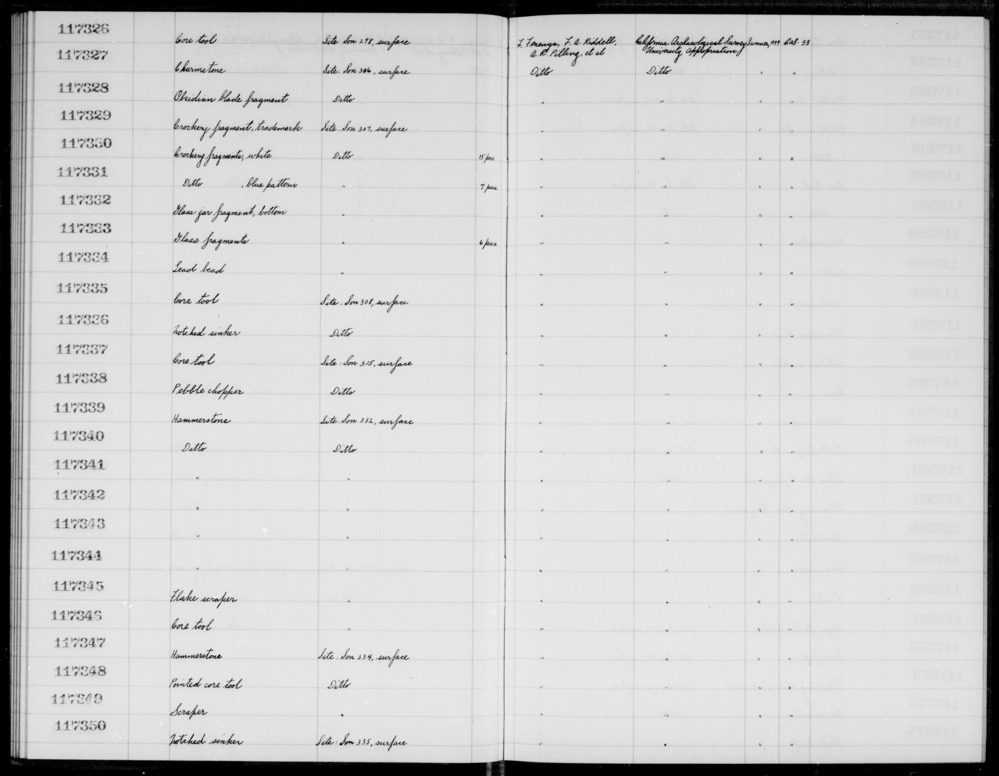 117326 Core tool Site Son 298, surface F. Fenenga, F. A. Riddell, California Archaeological Survey Summer, 1949 Dec. 33
A. R. Pilling, et al University Appropriation
117327 Charmstone Site Son 306, surface Ditto Ditto " "
117328 Obsidian blade fragment Ditto " " " "
117329 Crockery fragment, trademark Site Son 307, surface " " " "
117330 Crockery fragments, white Ditto 15 pcs " " " "
117331 Ditto , blue pattern " 7 pcs " " " "
117332 Glass jar fragment, bottom " " " " "
117333 Glass fragments " 6 pcs " " " "
117334 Lead bead " " " " "
117335 Core tool Site Son 308, surface " " " "
117336 Notched sinker Ditto " " " "
117337 Core tool Site Son 315, surface " " " "
117338 Pebble chopper Ditto " " " "
117339 Hammerstone Site Son 332, surface " " " "
117340 Ditto Ditto " " " "
117341 " " " " " "
117342 " " " " " "
117343 " " " " " "
117344 " " " " " "
117345 Flake scraper " " " " "
117346 Core tool " " " " "
117347 Hammerstone Site Son 334, surface " " " "
117348 Pointed core tool Ditto " " " "
117349 Scraper " " " " "
117350 Notched sinker Site Son 335, surface " " " "